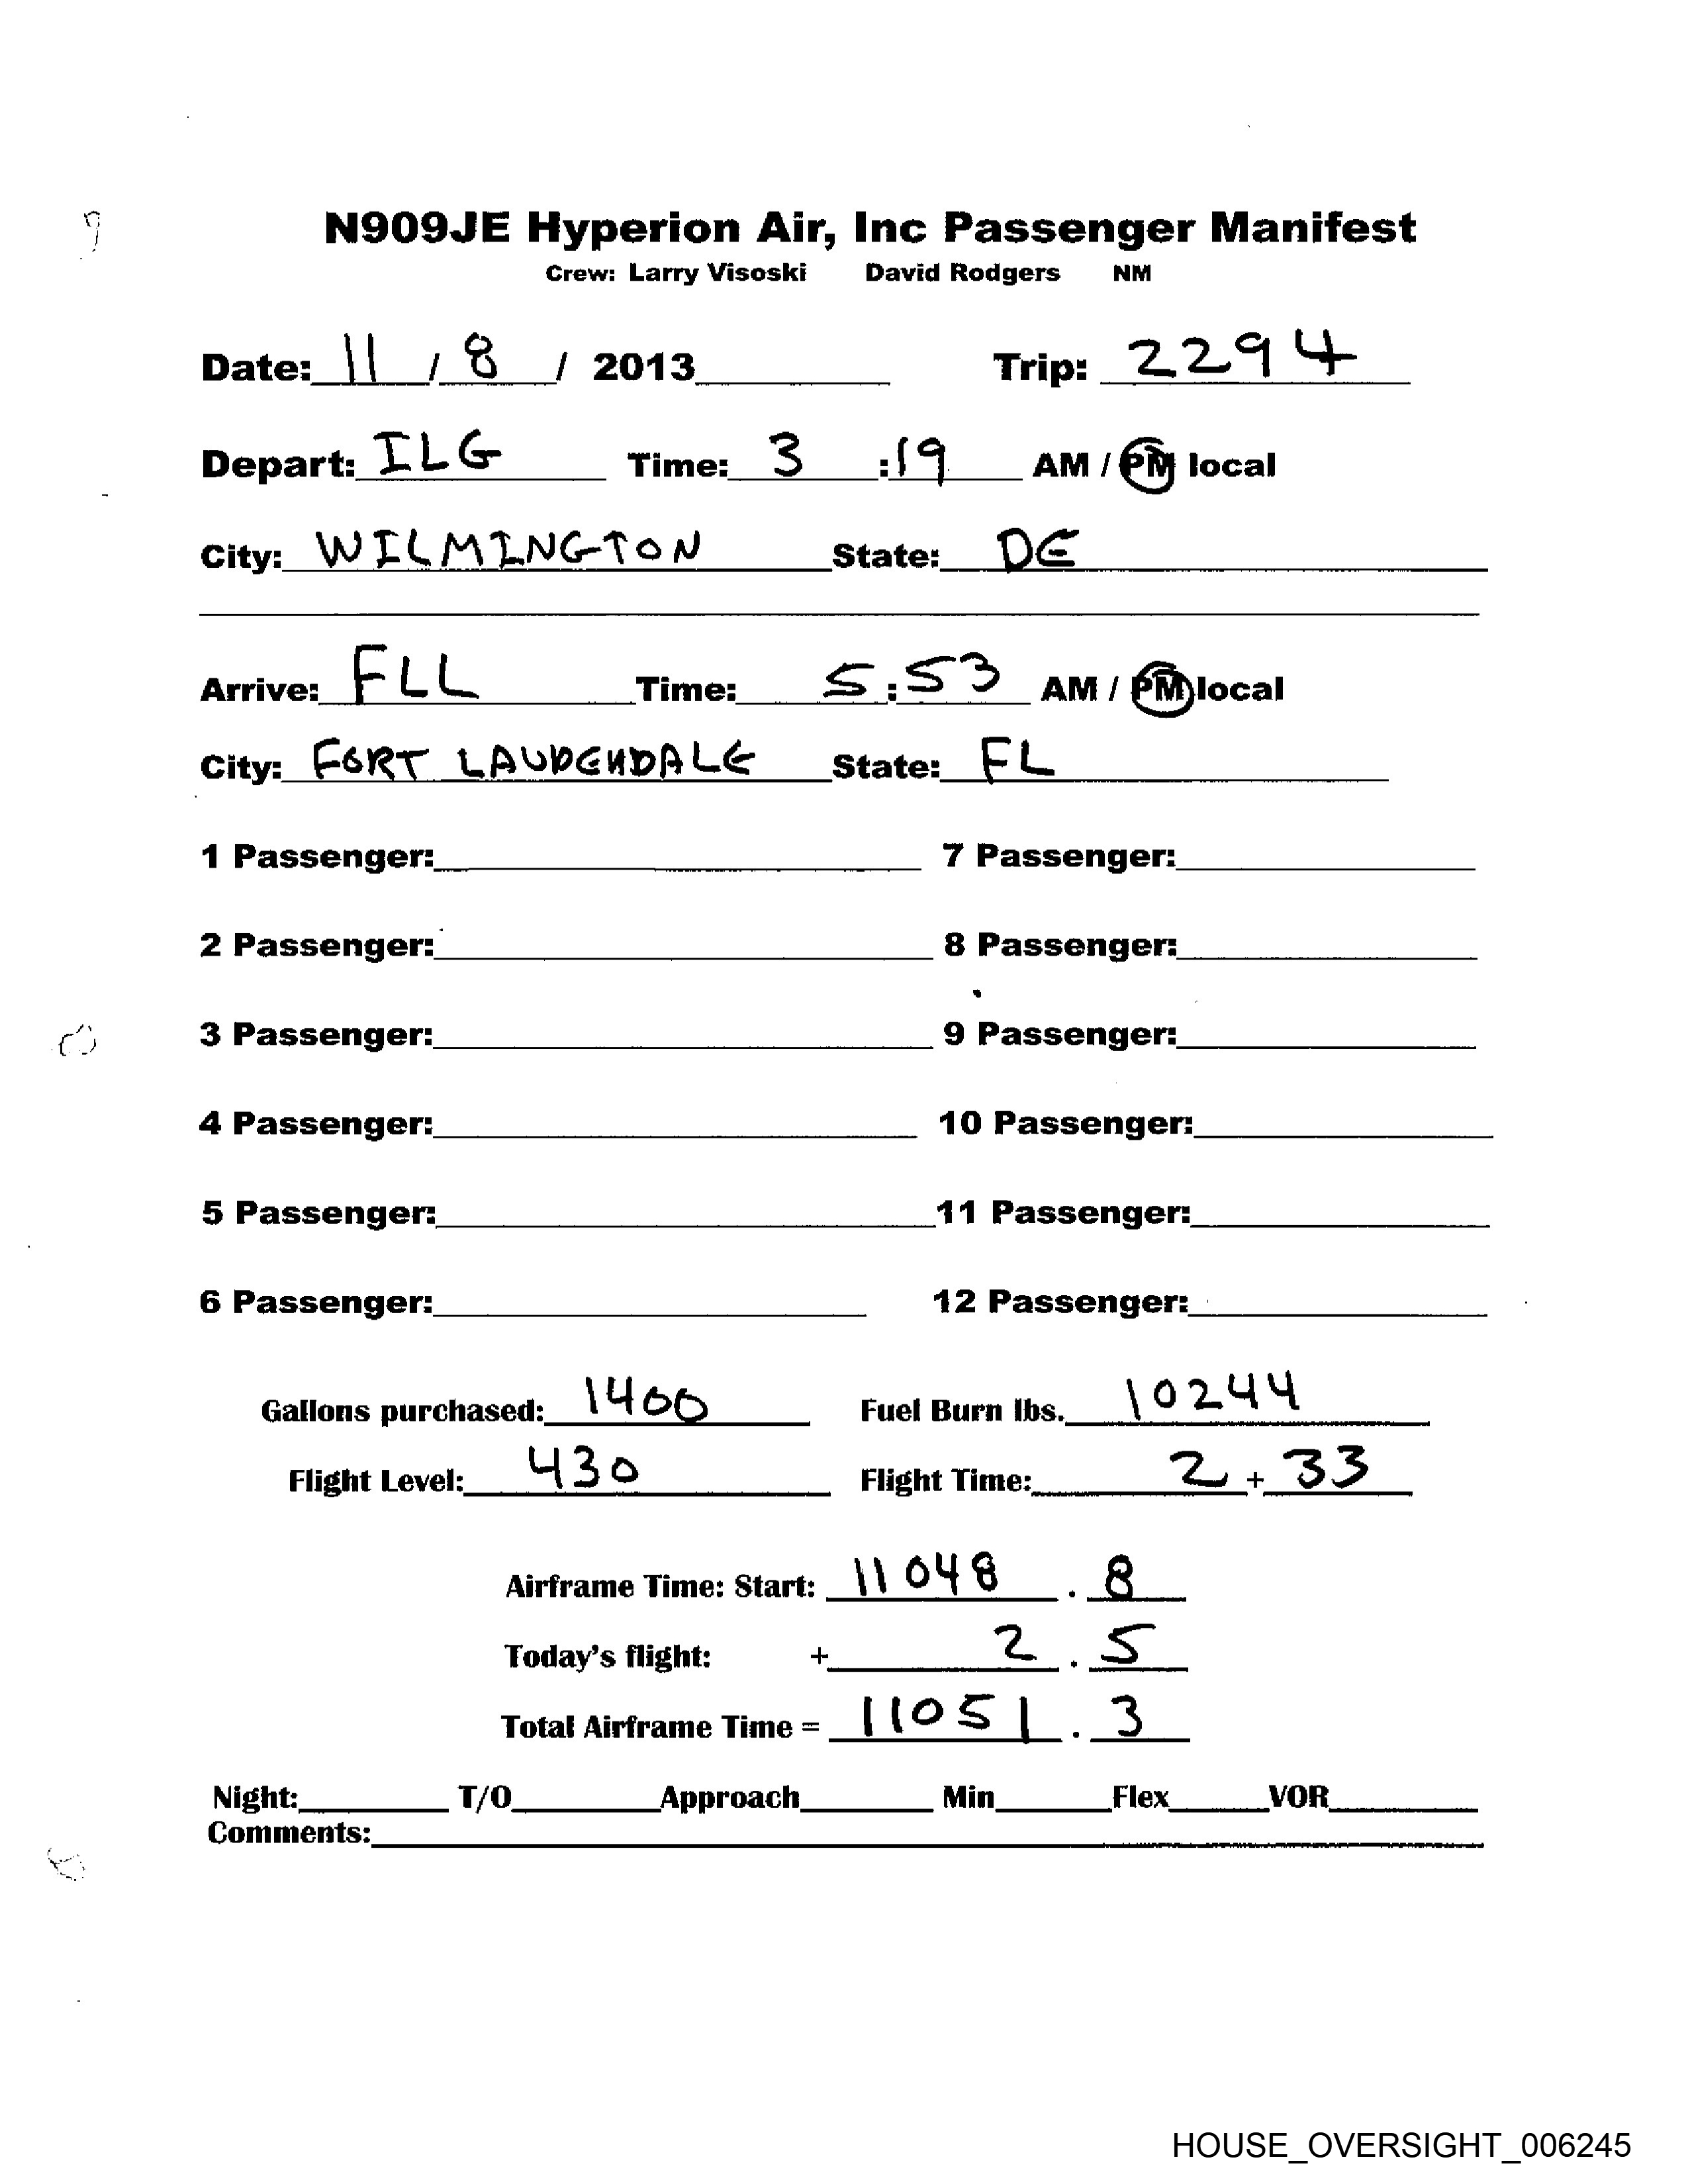 N909JE Hyperion Air, Inc Passenger Manifest
Crew: Larry Visoski David Rodgers NM
Date: 11 / 8 / 2013 Trip: 2294
Depart: ILG Time: 3 :19 AM / PM local
City: WILMINGTON State: DE
Arrive: FLL Time: 5:53 AM / PM local
City: FORT LAUDERDALE State: FL
1 Passenger: 7 Passenger:
2 Passenger: 8 Passenger:
3 Passenger: 9 Passenger:
4 Passenger: 10 Passenger:
5 Passenger: 11 Passenger:
6 Passenger: 12 Passenger:
Gallons purchased: 1400 Fuel Burn lbs. 10244
Flight Level: 430 Flight Time: 2 + 33
Airframe Time: Start: 11048 . 8
Today's flight: + 2 . 5
Total Airframe Time = 11051 . 3
Night: T/O Approach Min Flex VOR
Comments:
HOUSE_OVERSIGHT_006245